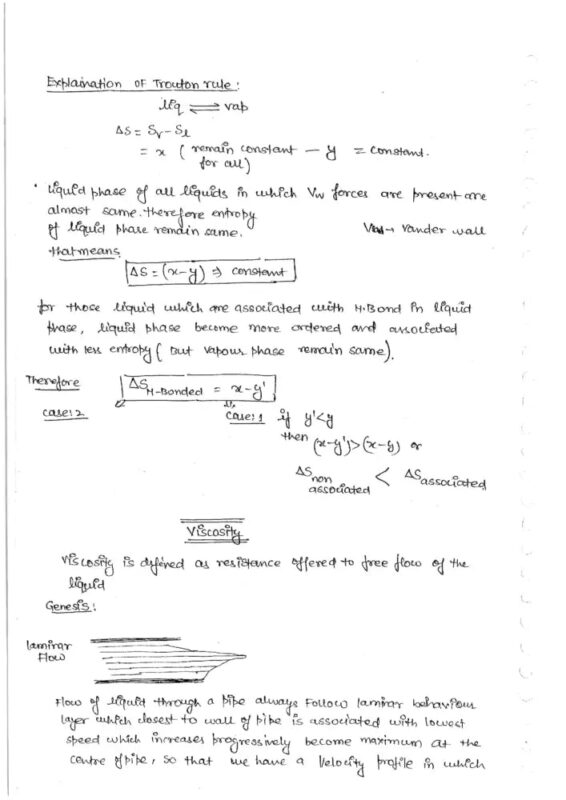 Explaination OF Trouton rule:
liq ⇌ vap
ΔS = Sv - Sl
= x ( remain constant — y = constant.
for all)
• liquid phase of all liquids in which Vw forces are present are
almost same. therefore entropy
of liquid phase remain same. Vw → Vander wall
that means
ΔS = (x-y) ⇒ constant
for those liquid which are associated with H.Bond in liquid
phase, liquid phase become more ordered and associated
with less entropy ( But vapour phase remain same).
Therefore ΔS H-Bonded = x-y'
case:2 case:1 if y'<y
then (x-y')>(x-y) or
ΔS non associated < ΔS associated
Viscosity
Viscosity is defined as resistance offered to free flow of the
liquid
Genesis:
laminar
Flow
Flow of liquid through a pipe always Follow laminar behaviour
layer which closest to wall of pipe is associated with lowest
speed which increases progressively become maximum at the
centre of pipe, so that we have a Velocity profile in which